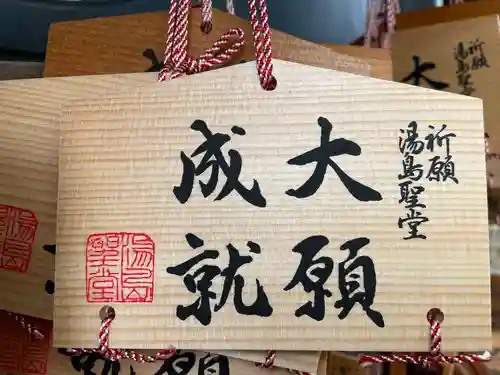 祈願
湯島聖堂
大願
成就
湯島
聖堂
祈願
湯島聖堂
大
湯島
願